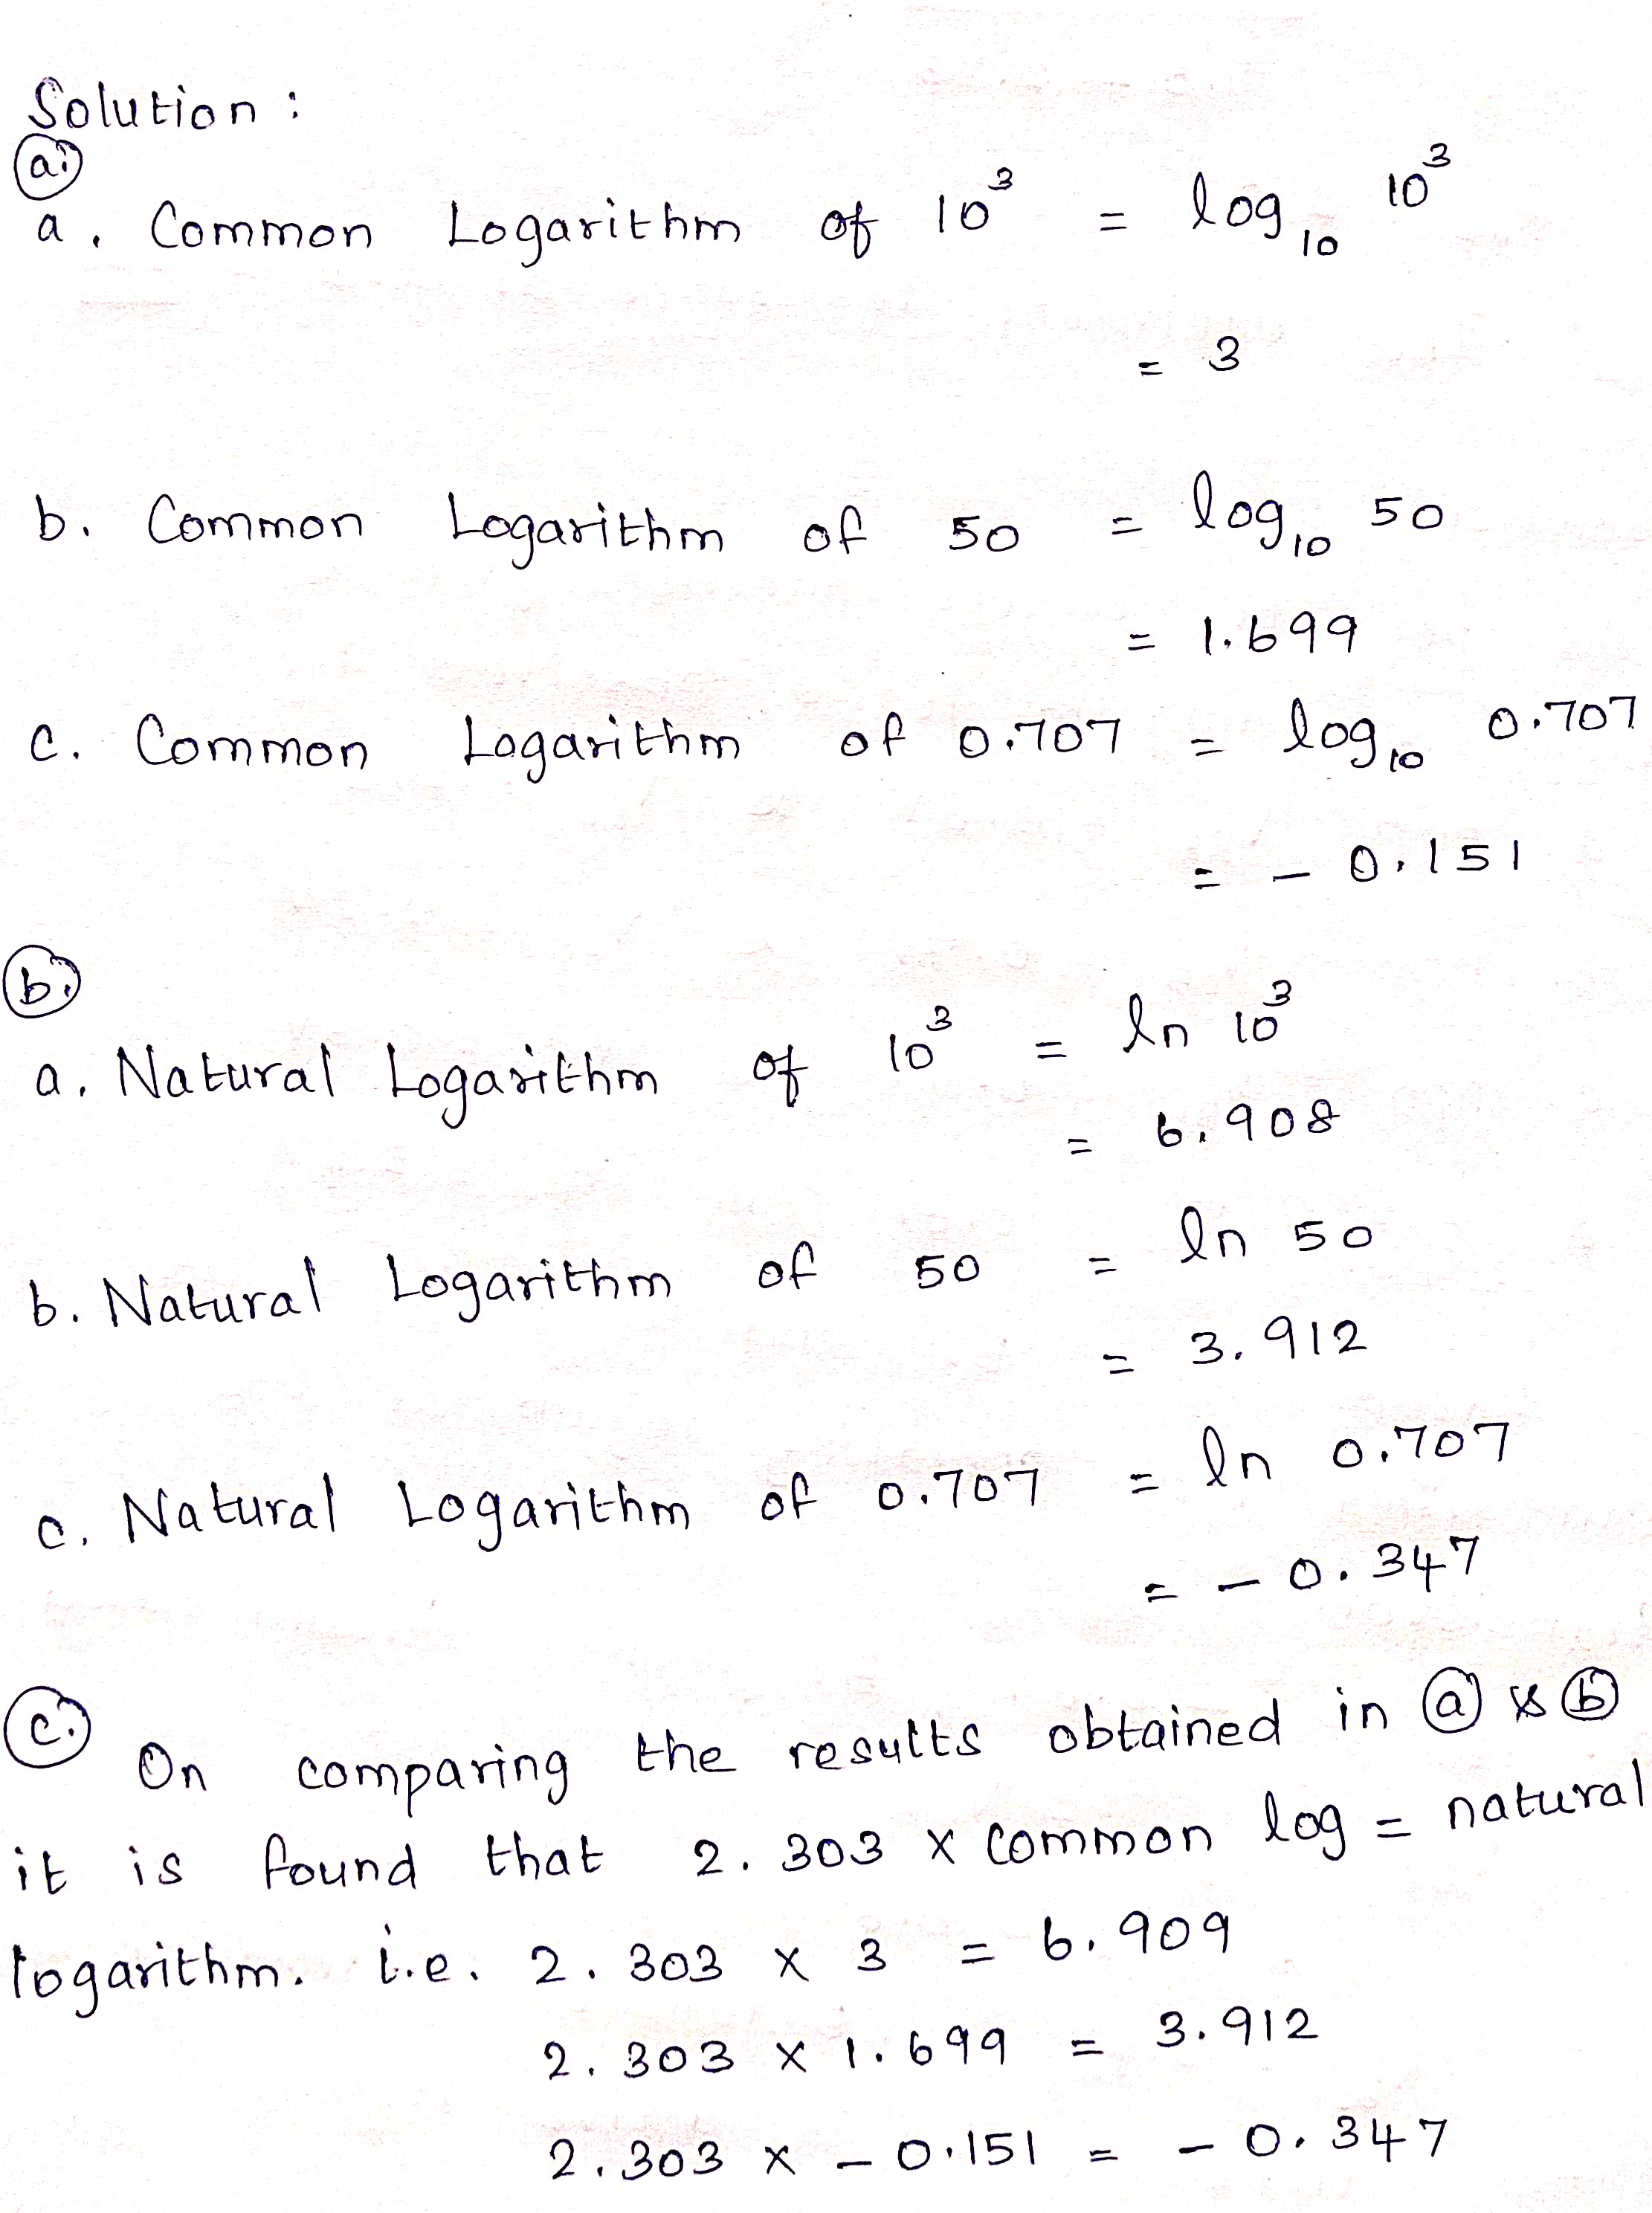 Solution :
a.
a. Common Logarithm of 10³ = log₁₀ 10³
= 3
b. Common Logarithm of 50 = log₁₀ 50
= 1.699
c. Common Logarithm of 0.707 = log₁₀ 0.707
= - 0.151
b.
a. Natural Logarithm of 10³ = ln 10³
= 6.908
b. Natural Logarithm of 50 = ln 50
= 3.912
c. Natural Logarithm of 0.707 = ln 0.707
= - 0.347
c.
On comparing the results obtained in ⓐ & ⓑ
it is found that 2.303 x common log = natural
logarithm. i.e. 2.303 x 3 = 6.909
2.303 x 1.699 = 3.912
2.303 x - 0.151 = - 0.347